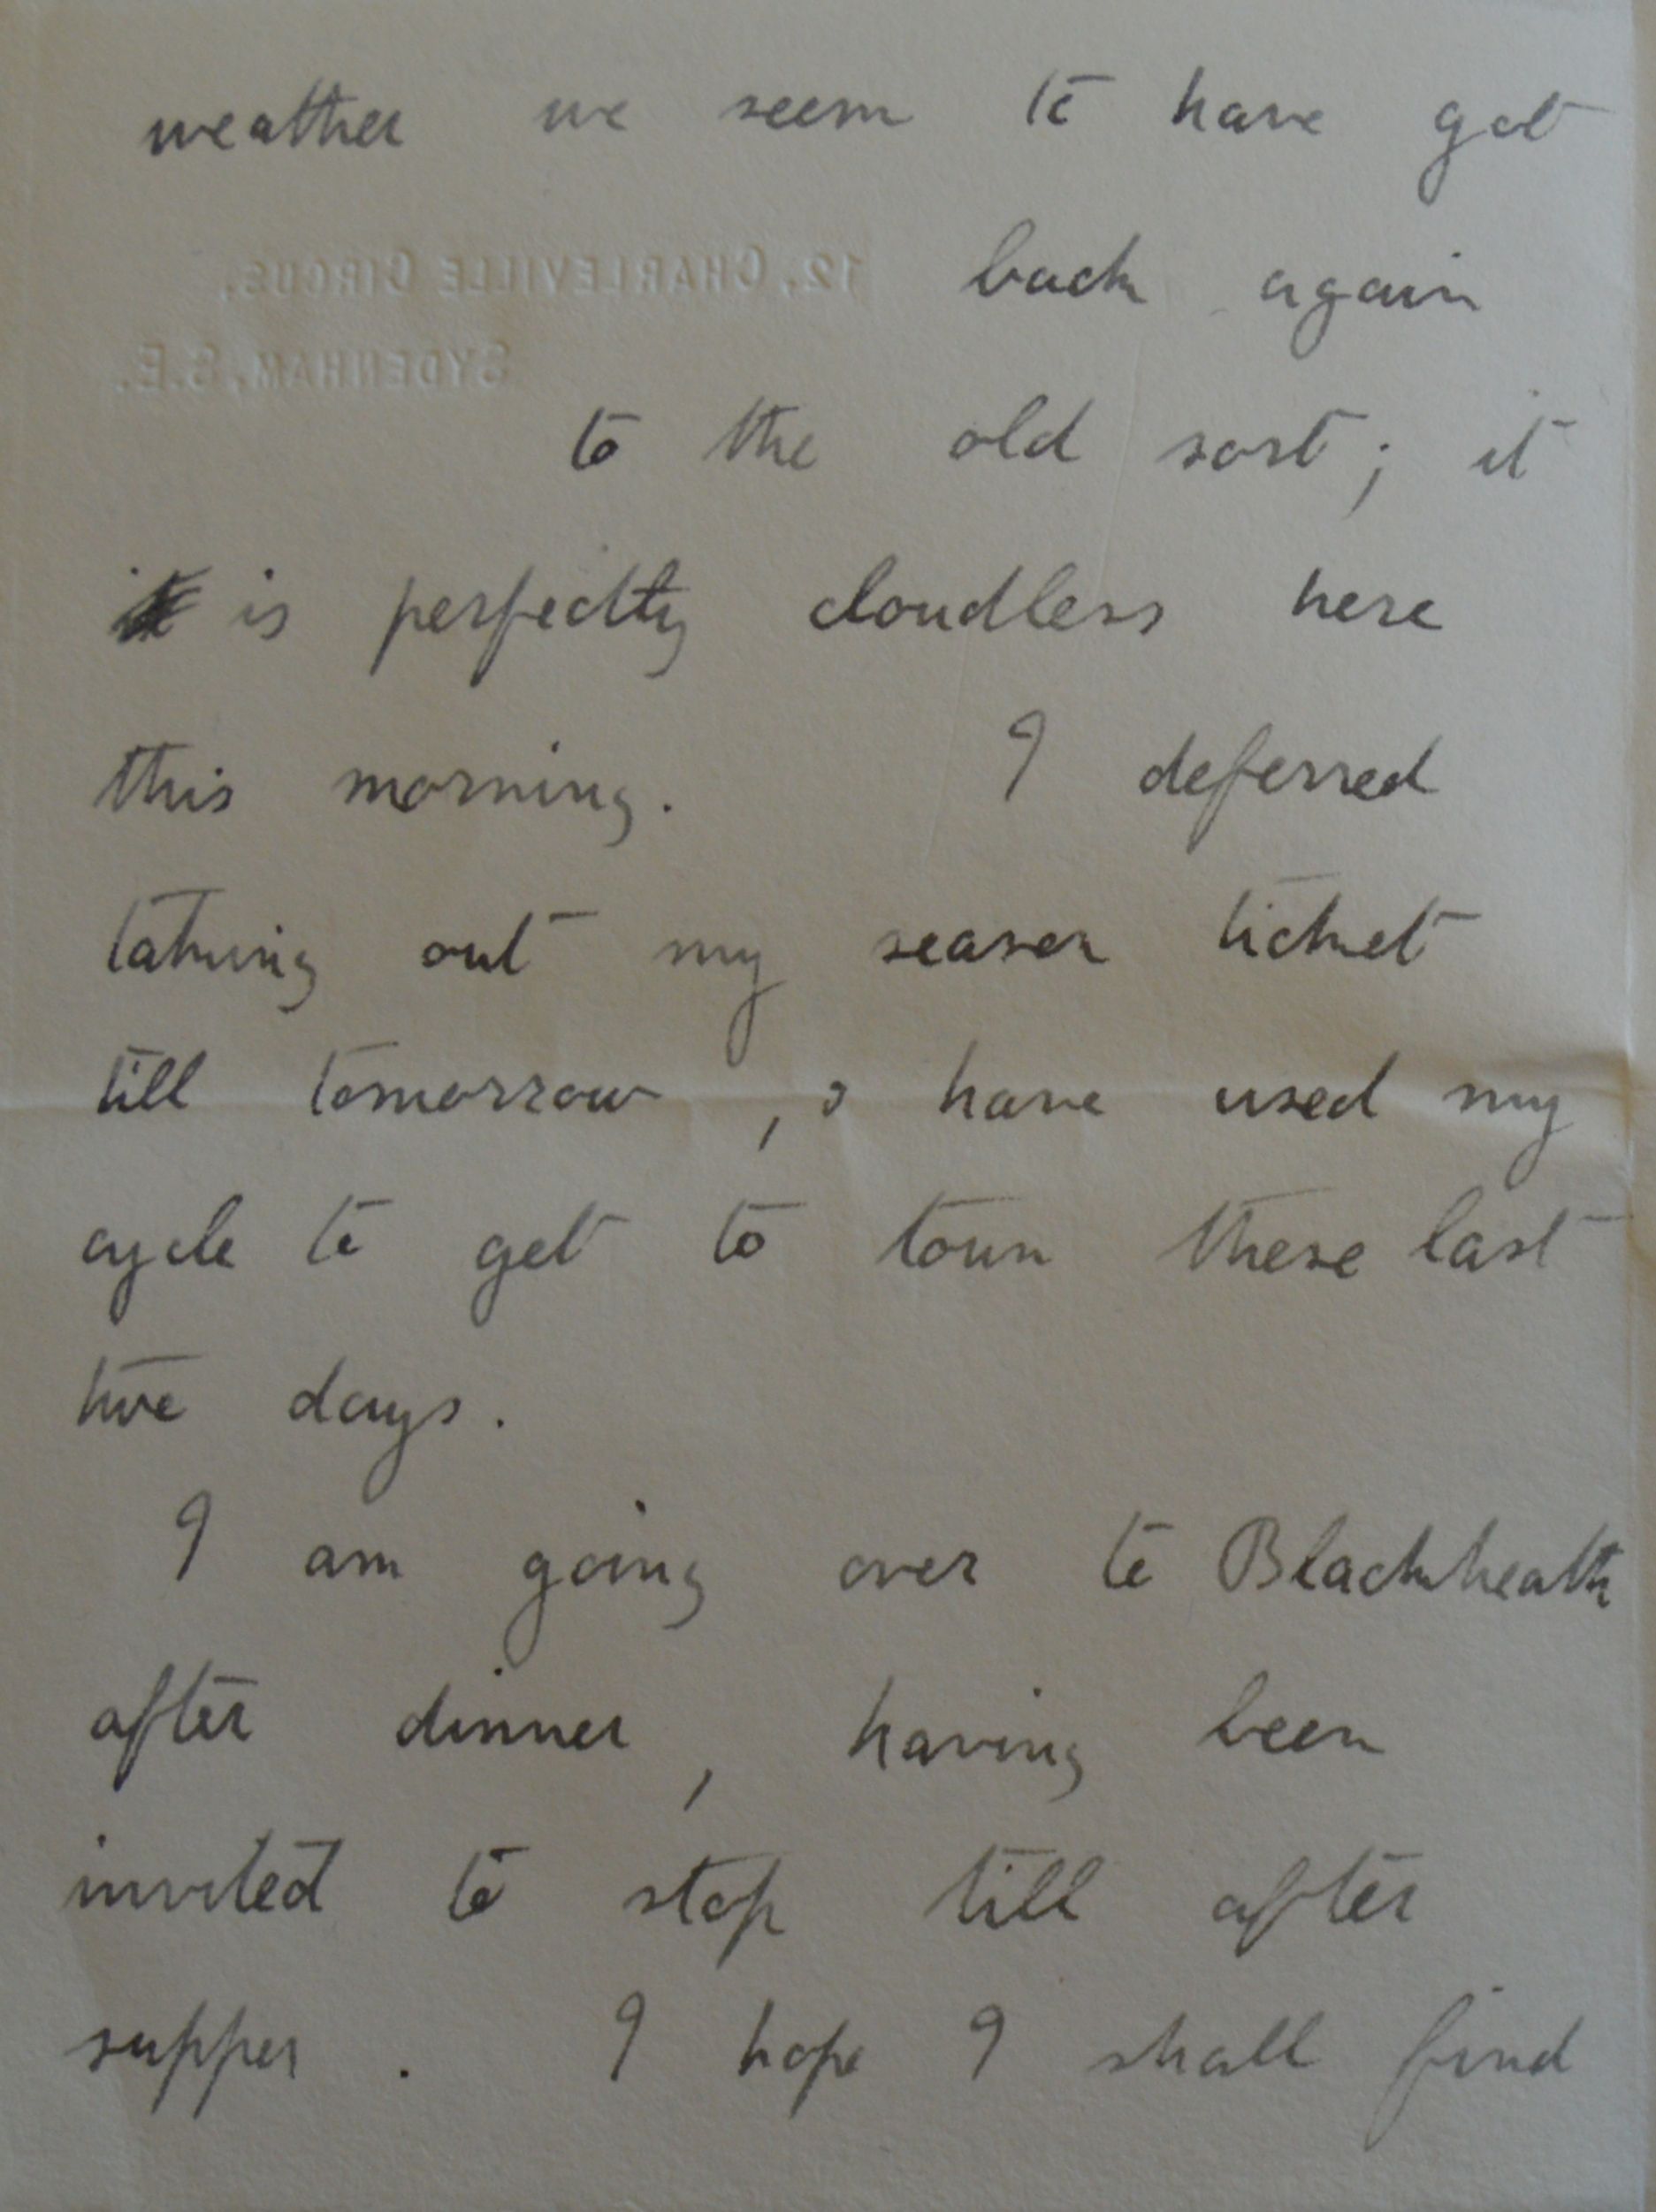 weather we seem to have got
12, CHARLEVILLE CIRCUS,
back again
SYDENHAM, S.E.
to the old sort; it
is perfectly cloudless here
this morning. I deferred
taking out my season ticket
till tomorrow, & have used my
cycle to get to town these last
two days.
I am going over to Blackheath
after dinner, having been
invited to stop till after
supper. I hope I shall find